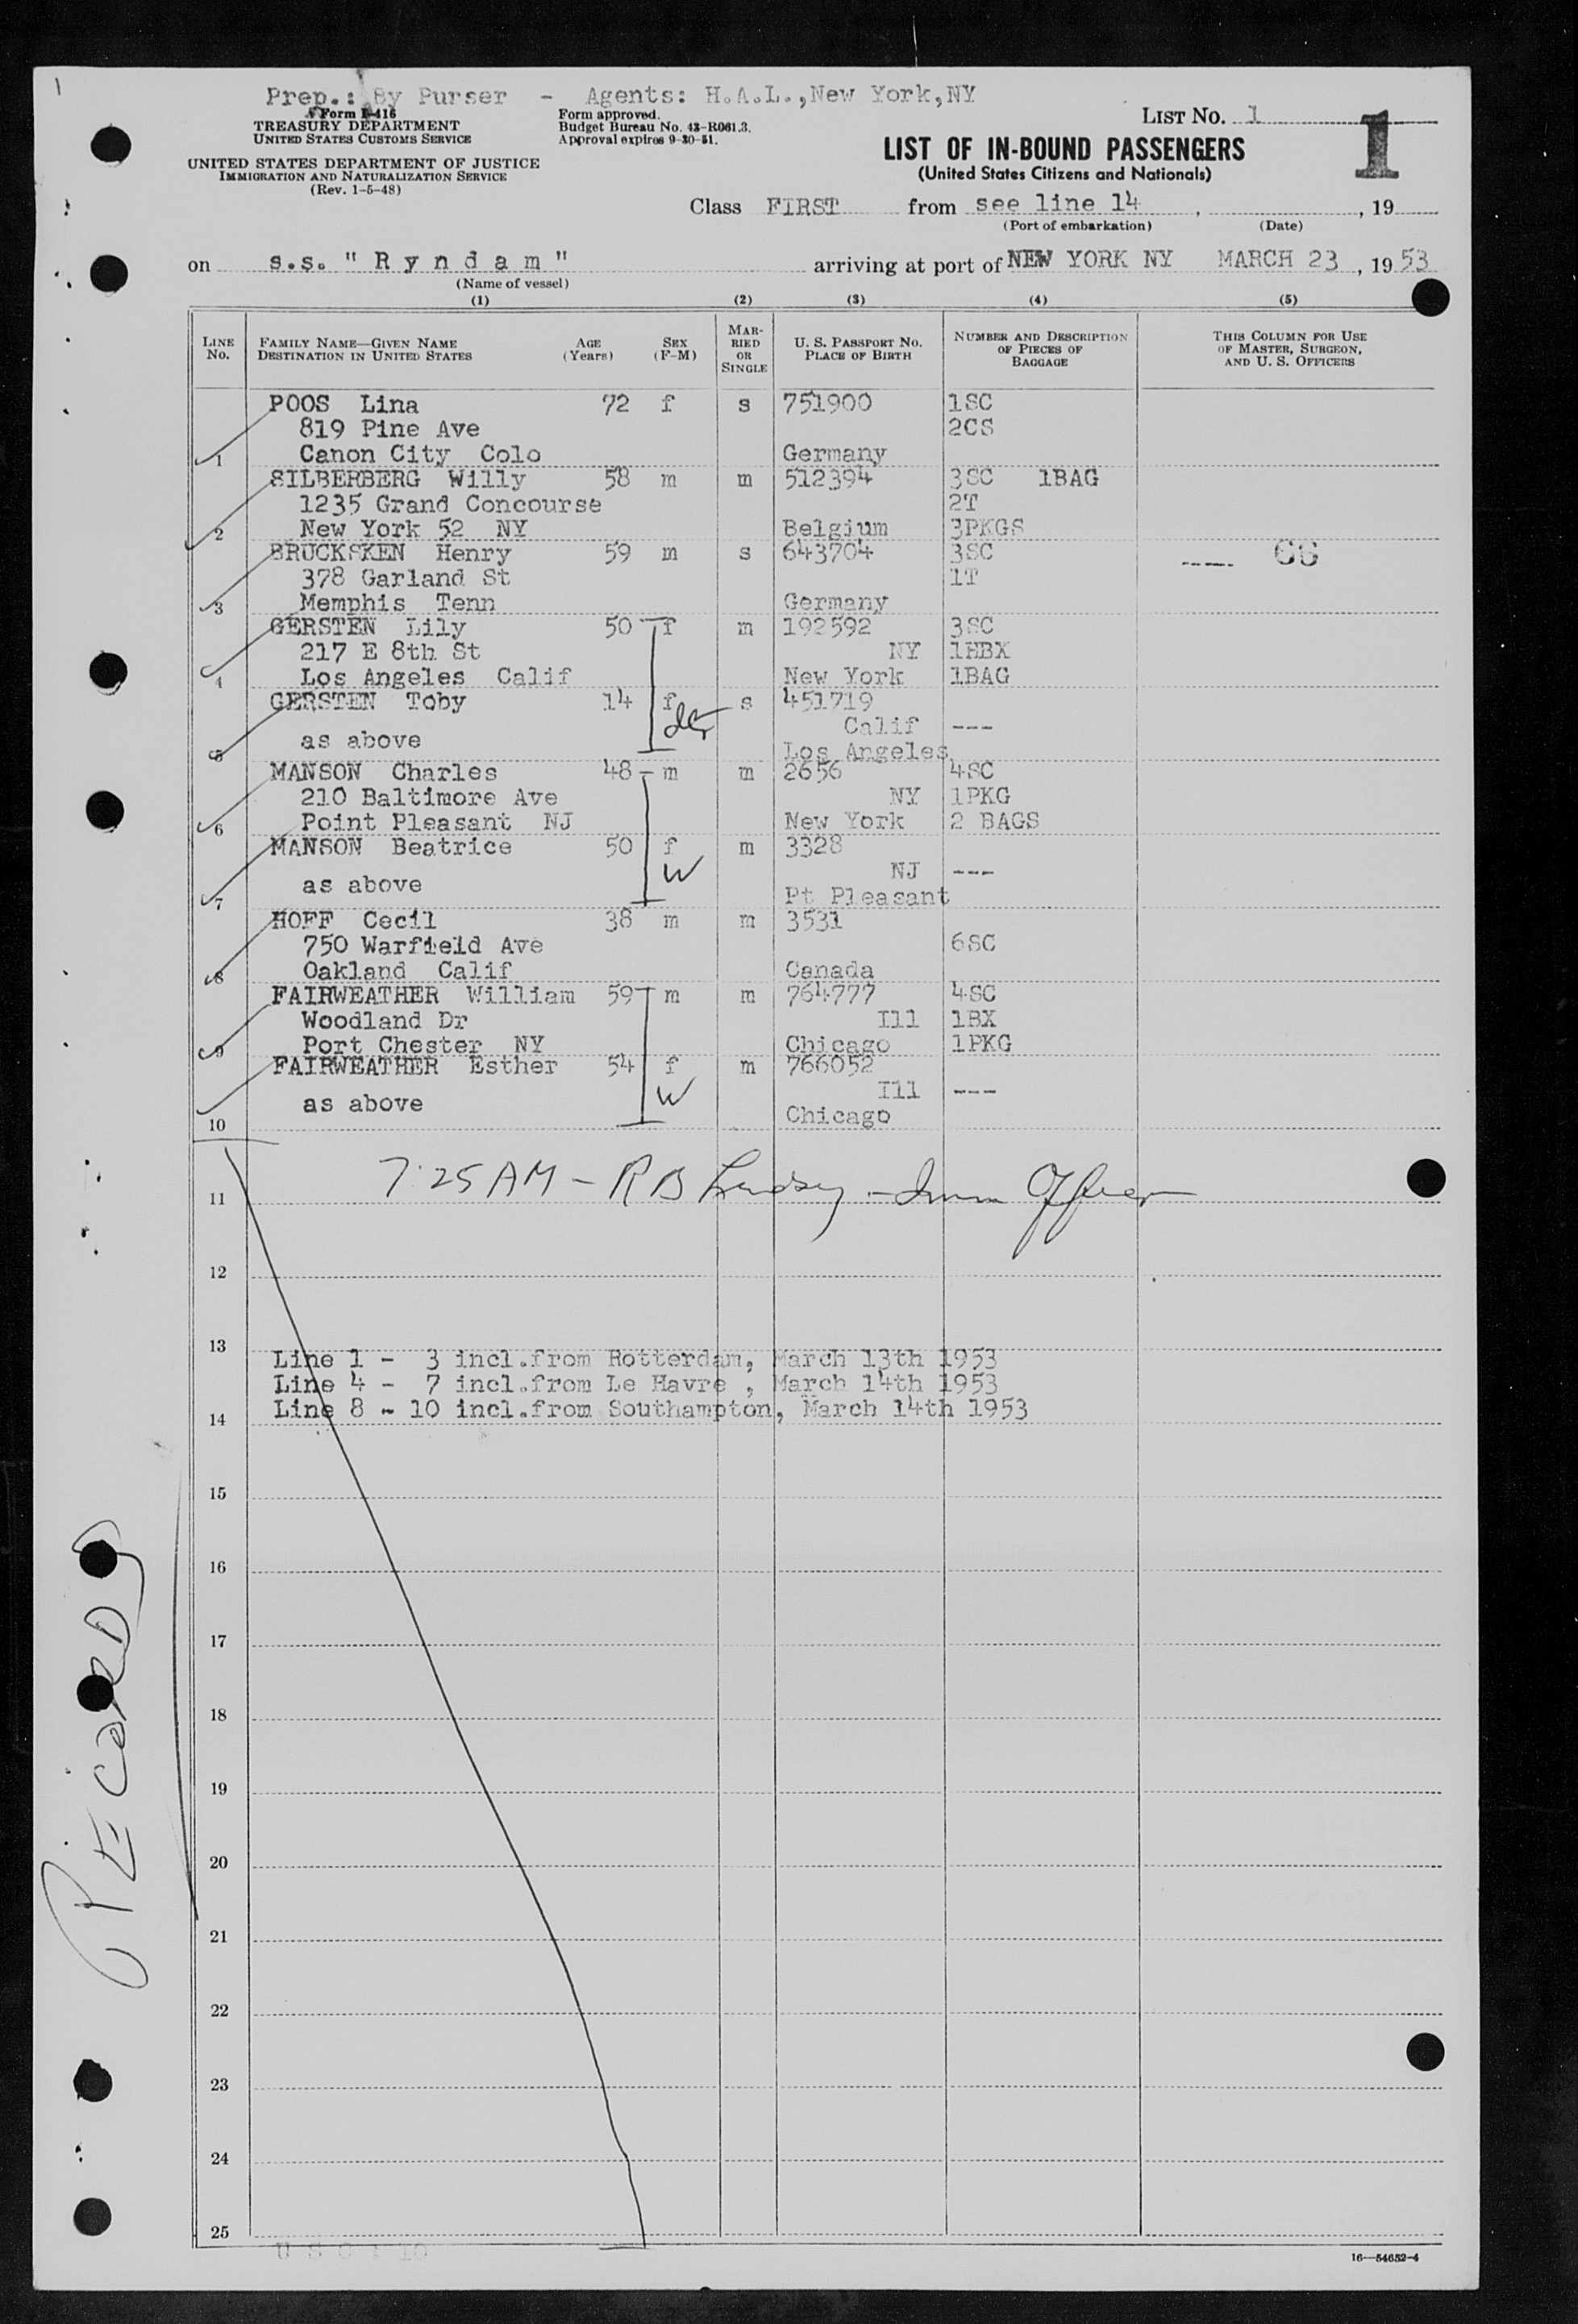 1
Prep.: By Purser - Agents: H.A.L.,New York,NY
Form I-416
TREASURY DEPARTMENT
UNITED STATES CUSTOMS SERVICE
UNITED STATES DEPARTMENT OF JUSTICE
IMMIGRATION AND NATURALIZATION SERVICE
(Rev. 1-5-48)
Form approved.
Budget Bureau No. 43-R061.3.
Approval expires 9-30-51.
LIST NO. 1
1
LIST OF IN-BOUND PASSENGERS
(United States Citizens and Nationals)
Class FIRST from see line 14 , , 19
(Port of embarkation) (Date)
on s.s. " R y n d a m " arriving at port of NEW YORK NY MARCH 23 , 19 53
(Name of vessel)
(1) (2) (3) (4) (5)
LINE NO.
FAMILY NAME—GIVEN NAME
DESTINATION IN UNITED STATES
AGE (Years)
SEX (F-M)
MARRIED OR SINGLE
U. S. PASSPORT NO.
PLACE OF BIRTH
NUMBER AND DESCRIPTION OF PIECES OF BAGGAGE
THIS COLUMN FOR USE OF MASTER, SURGEON, AND U. S. OFFICERS
POOS Lina 72 f s 751900 1SC
819 Pine Ave 2CS
1 Canon City Colo Germany
SILBERBERG Willy 58 m m 512394 3SC 1BAG
1235 Grand Concourse 2T
2 New York 52 NY Belgium 3PKGS
BRUCKSKEN Henry 59 m s 643704 3SC
378 Garland St 1T
3 Memphis Tenn Germany
GERSTEN Lily 50 f m 192592 3SC
217 E 8th St NY 1HBX
4 Los Angeles Calif New York 1BAG
GERSTEN Toby 14 f s 451719
Calif ---
5 as above Los Angeles
MANSON Charles 48 m m 2656 4SC
210 Baltimore Ave NY 1PKG
6 Point Pleasant NJ New York 2 BAGS
MANSON Beatrice 50 f m 3328
W NJ ---
7 as above Pt Pleasant
HOFF Cecil 38 m m 3531
750 Warfield Ave 6SC
8 Oakland Calif Canada
FAIRWEATHER William 59 m m 764777 4SC
Woodland Dr Ill 1BX
9 Port Chester NY Chicago 1PKG
FAIRWEATHER Esther 54 f m 766052
as above W Ill ---
10 Chicago
7:25 AM - R B Lindsey - Imm Officer
11
12
13
Line 1 - 3 incl.from Rotterdam, March 13th 1953
Line 4 - 7 incl.from Le Havre , March 14th 1953
Line 8 - 10 incl.from Southampton, March 14th 1953
14
15
16
17
18
19
20
21
22
23
24
25
16—54652-4